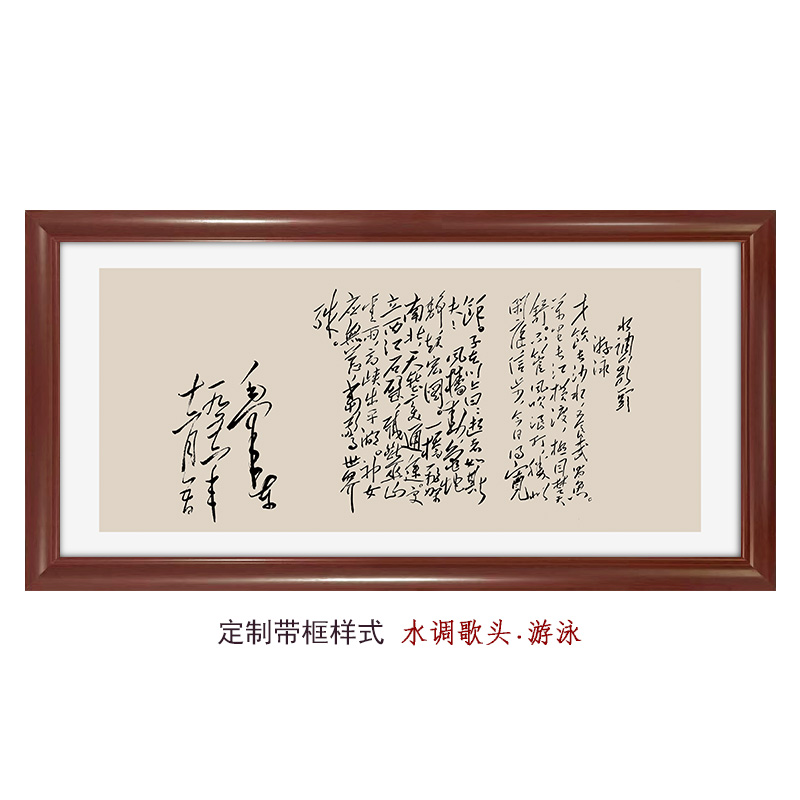 水调歌头
游泳
才饮长沙水，又食武昌鱼。
万里长江横渡，极目楚天
舒。不管风吹浪打，胜似
闲庭信步，今日得宽
馀。子在川上曰：逝者如斯
夫！风樯动，龟蛇
静，起宏图。一桥飞架
南北，天堑变通途。更
立西江石壁，截断巫山
云雨，高峡出平湖。神女
应无恙，当惊世界
殊。
毛泽东
一九五六年
十二月五日
定制带框样式 水调歌头·游泳